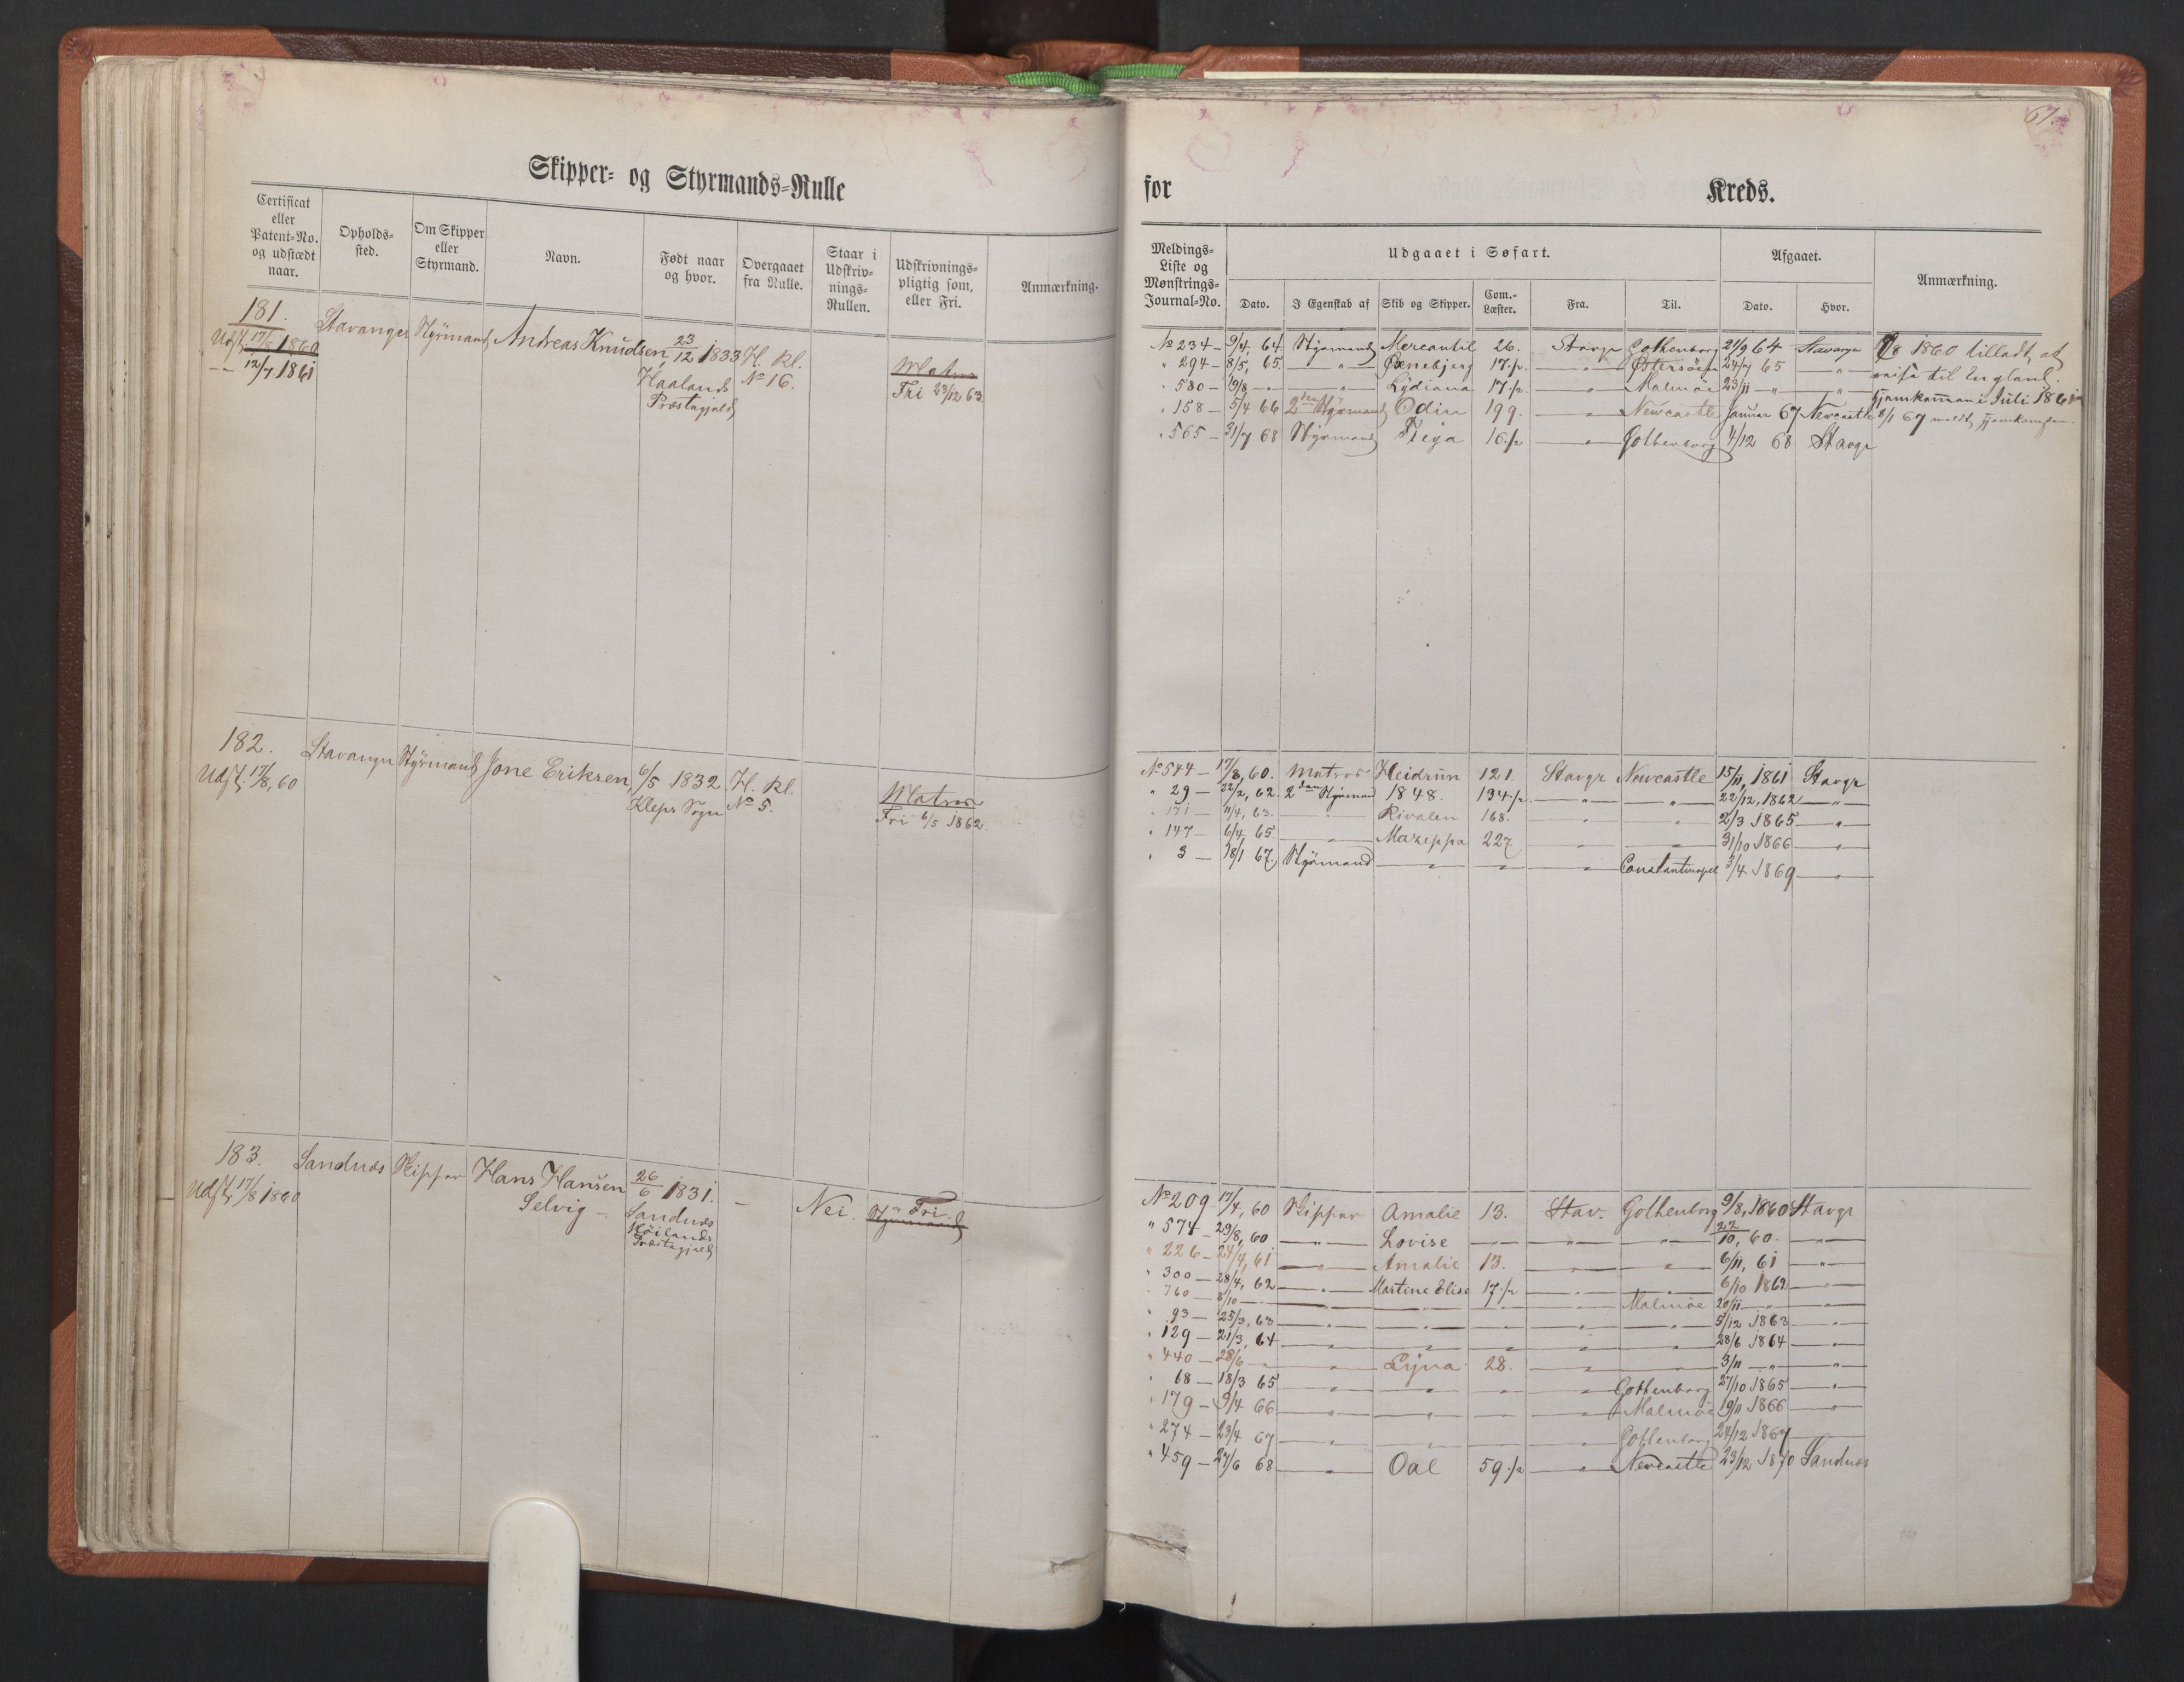 67.
Skipper- og Styrmands-Rulle
for Kreds.
Certificat eller Patent-No. og udstædt naar.
Opholds-sted.
Om Skipper eller Styrmand.
Navn.
Født naar og hvor.
Overgaaet fra Rulle.
Staar i Udskriv-nings-Rullen.
Udskrivnings-pligtig som, eller Fri.
Anmærkning.
Meldings-Liste og Mønstrings-Journal-No.
Udgaaet i Søfart.
Afgaaet.
Anmærkning.
Dato. I Egenskab af Skib og Skipper. Com.-Læster. Fra. Til. Dato. Hvor.
181. Stavanger Styrmand Andreas Knudsen, 23/12 1833 H. Kl.
Udst. 17/8 1860 Haalands No 16. Matros
- " - 12/7 1861 Præstegjeld Fri 23/12 63
No 234 - 9/4, 64 Styrmand Mercantil 26. Stavgr Gothenborg 21/9 64 Stavanger 7/8 1860 tilladt at
" 294 - 8/5, 65. - " - Øxnebjerg 17 1/2. - " - Østersöen 24/7 65 - " - reise til England.
" 580 - 19/8 - " - - " - Lydiana 17 1/2. - " - Malmöe 23/11 - " - - " - Hjemkommen i Juli 1861
" 158 - 5/4 66 2den Styrmand Odin 199. - " - Newcastle Januar 67 Newcastle 8/1 67 meldt hjemkommen.
" 565 - 31/7 68 Styrmand Freya 16 1/2 - " - Gothenborg 4/12 68 Stavgr
182. Stavanger Styrmand Jone Eriksen, 6/5 1832 H. Kl.
Udst. 17/8, 60 Kleps Sogn No 5. Matros
Fri 6/5 1862.
No 544 - 17/8, 60. Matros Heidrün 121. Stavgr Newcastle 15/11, 1861 Stavgr
" 29 - 22/2, 62. 2den Styrmand 1848. 134 1/2 - " - - " - 22/12, 1862 - " -
" 171 - 11/4, 63. - " - Rivalen 168. - " - - " - 2/3 1865 - " -
" 147 - 6/4, 65 - " - Mazeppa 227 - " - - " - 31/10 1866 - " -
" 3 - 18/1 67. Styrmand - " - - " - - " - Constantinopel 3/4 1869 - " -
183. Sandnæs Skipper Hans Hansen 26/6 1831. - Nei. Fri.
Udst. 17/8 1860 Selvig - Sandnæs Styrmand
Höilands
Præstegjeld
No 209 17/4, 60 Skipper Amalie 13. Stav. Gothenborg 9/8, 1860 Stavgr
" 574 - 29/8, 60 - " - Lovise - " - - " - - " - 22/10, 60. - " -
" 226 - 27/4, 61 - " - Amalie 13. - " - - " - 6/11, 61 - " -
" 300 - 28/4, 62 - " - Martine Elise 17 1/2 - " - - " - 6/10 1862 - " -
" 760 - 8/10 - " - - " - - " - - " - - " - Malmöe 20/11 - " - - " -
" 93 - 25/3, 63 - " - - " - - " - - " - - " - 5/12 1863 - " -
" 129 - 21/3, 64 - " - - " - - " - - " - - " - 28/6 1864 - " -
" 440 - 28/6 - " - - " - Lyna 28. - " - - " - 3/11 - " - - " -
" 68 - 18/3 65 - " - - " - - " - - " - Gothenborg 27/10 1865 - " -
" 179 - 9/4 66 - " - - " - - " - - " - Malmöe 19/11 1866 - " -
" 274 - 23/4 67 - " - - " - - " - - " - Gothenborg 24/12 1867 - " -
" 459 - 27/6 68 - " - Oal 59 1/2 - " - Newcastle 23/12 1870 Sandnæs